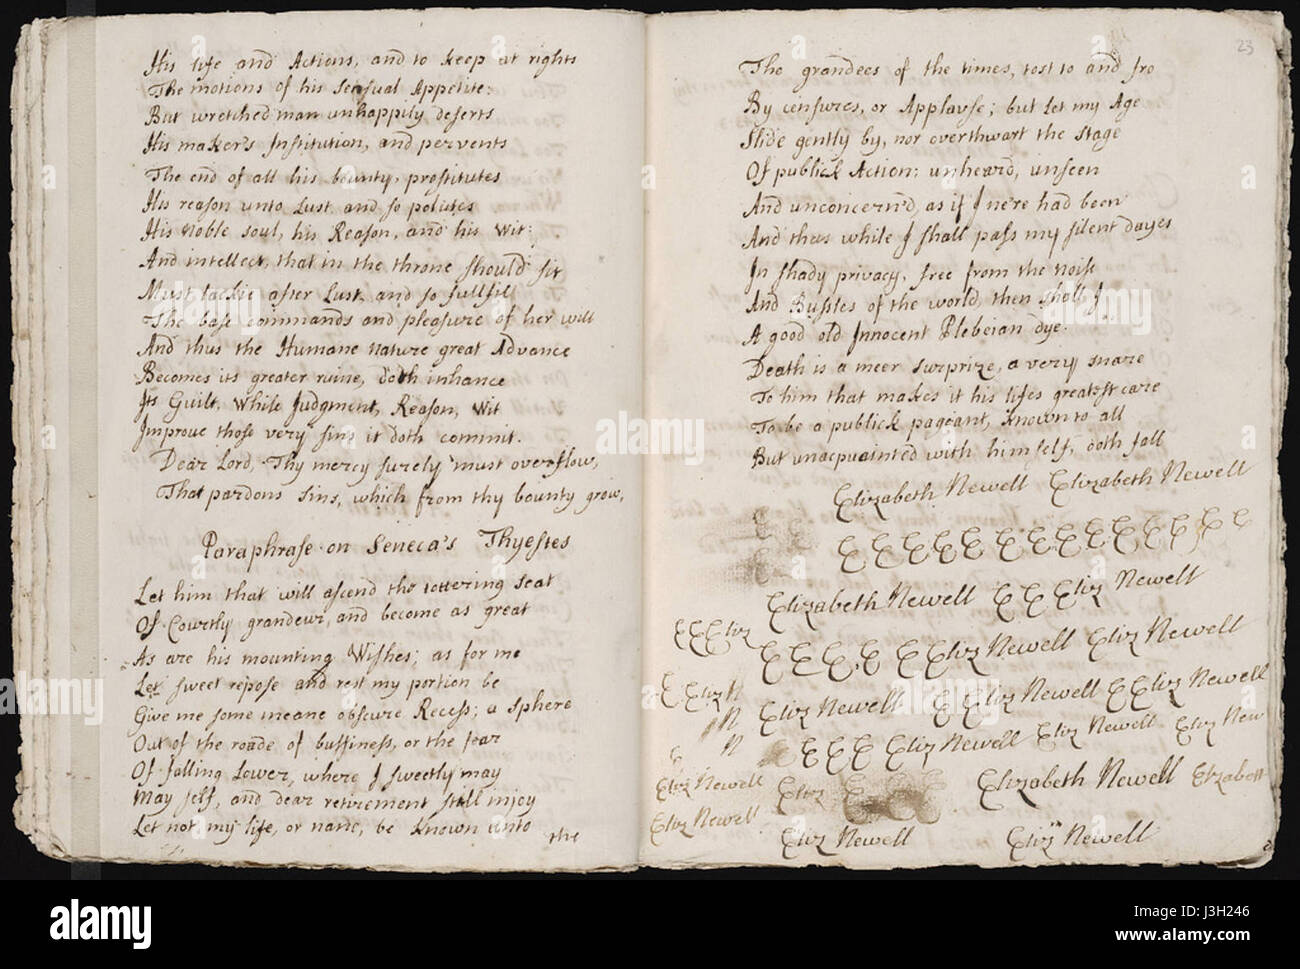 His life and Actions, and to keep at rights
The motions of his sensual Appetite:
But wretched man unhappily deserts
His maker's Institution, and pervents
The end of all his bounty, prostitutes
His reason unto Lust and so polutes
His Noble soul, his Reason, and his Wit;
And intellect, that in the throne should sit
Must lackie after Lust, and so fullfil
The base commands and pleasure of her will
And thus the Humane nature great Advance
Becomes its greater ruine, doth inhance
Its Guilt, While Judgment, Reason, Wit
Improve those very sins it doth commit.
Dear Lord, Thy mercy surely must overflow,
That pardons sins, which from thy bounty grow,
Paraphrase on Seneca's Thyestes
Let him that will ascend the tottering seat
Of Courtly grandeur, and become as great
As are his mounting Wishes; as for me
Let sweet repose and rest my portion be
Give me some meane obscure Recess; a sphere
Out of the roade of bussiness, or the fear
Of falling Lower, where I sweetly may
May self, and dear retirement still injoy
Let not my life, or name, be known unto
the
23
The grandees of the times, tost to and fro
By censures, or Applause; but let my Age
Slide gently by, nor overthwart the stage
Of publick Action; unheard, unseen
And unconcern'd, as if I ne're had been
And thus while I shall pass my silent dayes
In shady privacy, free from the noise
And Busstes of the world, then shall I
A good old Innocent Plebeian dye.
Death is a meer surprize, a very snare
To him that makes it his lifes greatest care
To be a publick pageant, known to all
But unacquainted with himself, doth fall
Elizabeth Newell Elizabeth Newell
E E E E E E E E E E E E E E
Elizabeth Newell E E Eliz Newell
E E E Eliz
E E E E E Eliz Newell Eliz Newell
E Eliz N
N Eliz Newell E Eliz Newell E Eliz Newell
N E E E Eliz Newell Eliz Newell Eliz New
E
Eliz Newell Eliz E E E Elizabeth Newell Elizabeth
Eliz Newell
Eliz Newell Eliz Newell
alamy
alamy stock photo
J3H246
www.alamy.com